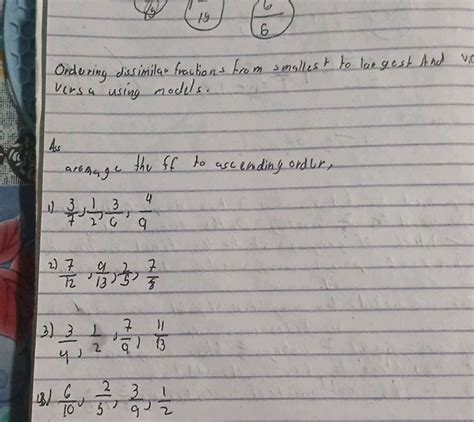 15
6
6
Ordering dissimilar fractions from smallest to largest And
versa using models.
Ass
arrange the ff to ascending order,
1) 3/7, 1/2, 3/6, 4/9
2) 7/12, 9/13, 2/5, 7/5
3) 3/4, 1/2, 7/9, 11/13
6/10, 2/5, 3/9, 1/2